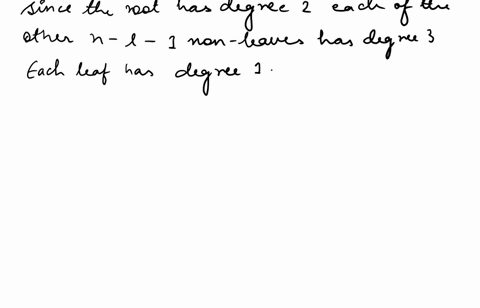 since the root has degree 2 each of the
other n - l - 1 non-leaves has degree 3
Each leaf has degree 1.